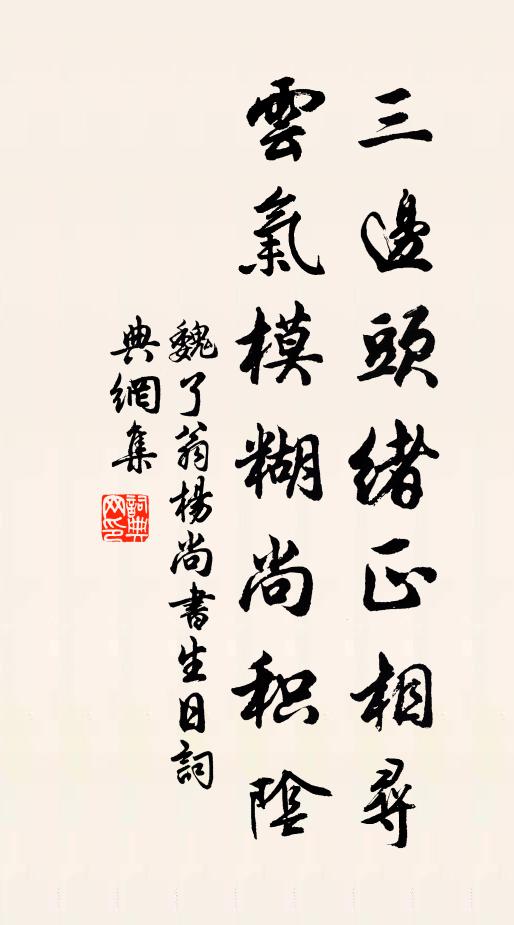 三邊頭緒正相尋
雲氣模糊尚积陰
魏了翁楊尚書生日詞
典網集
詞典網印